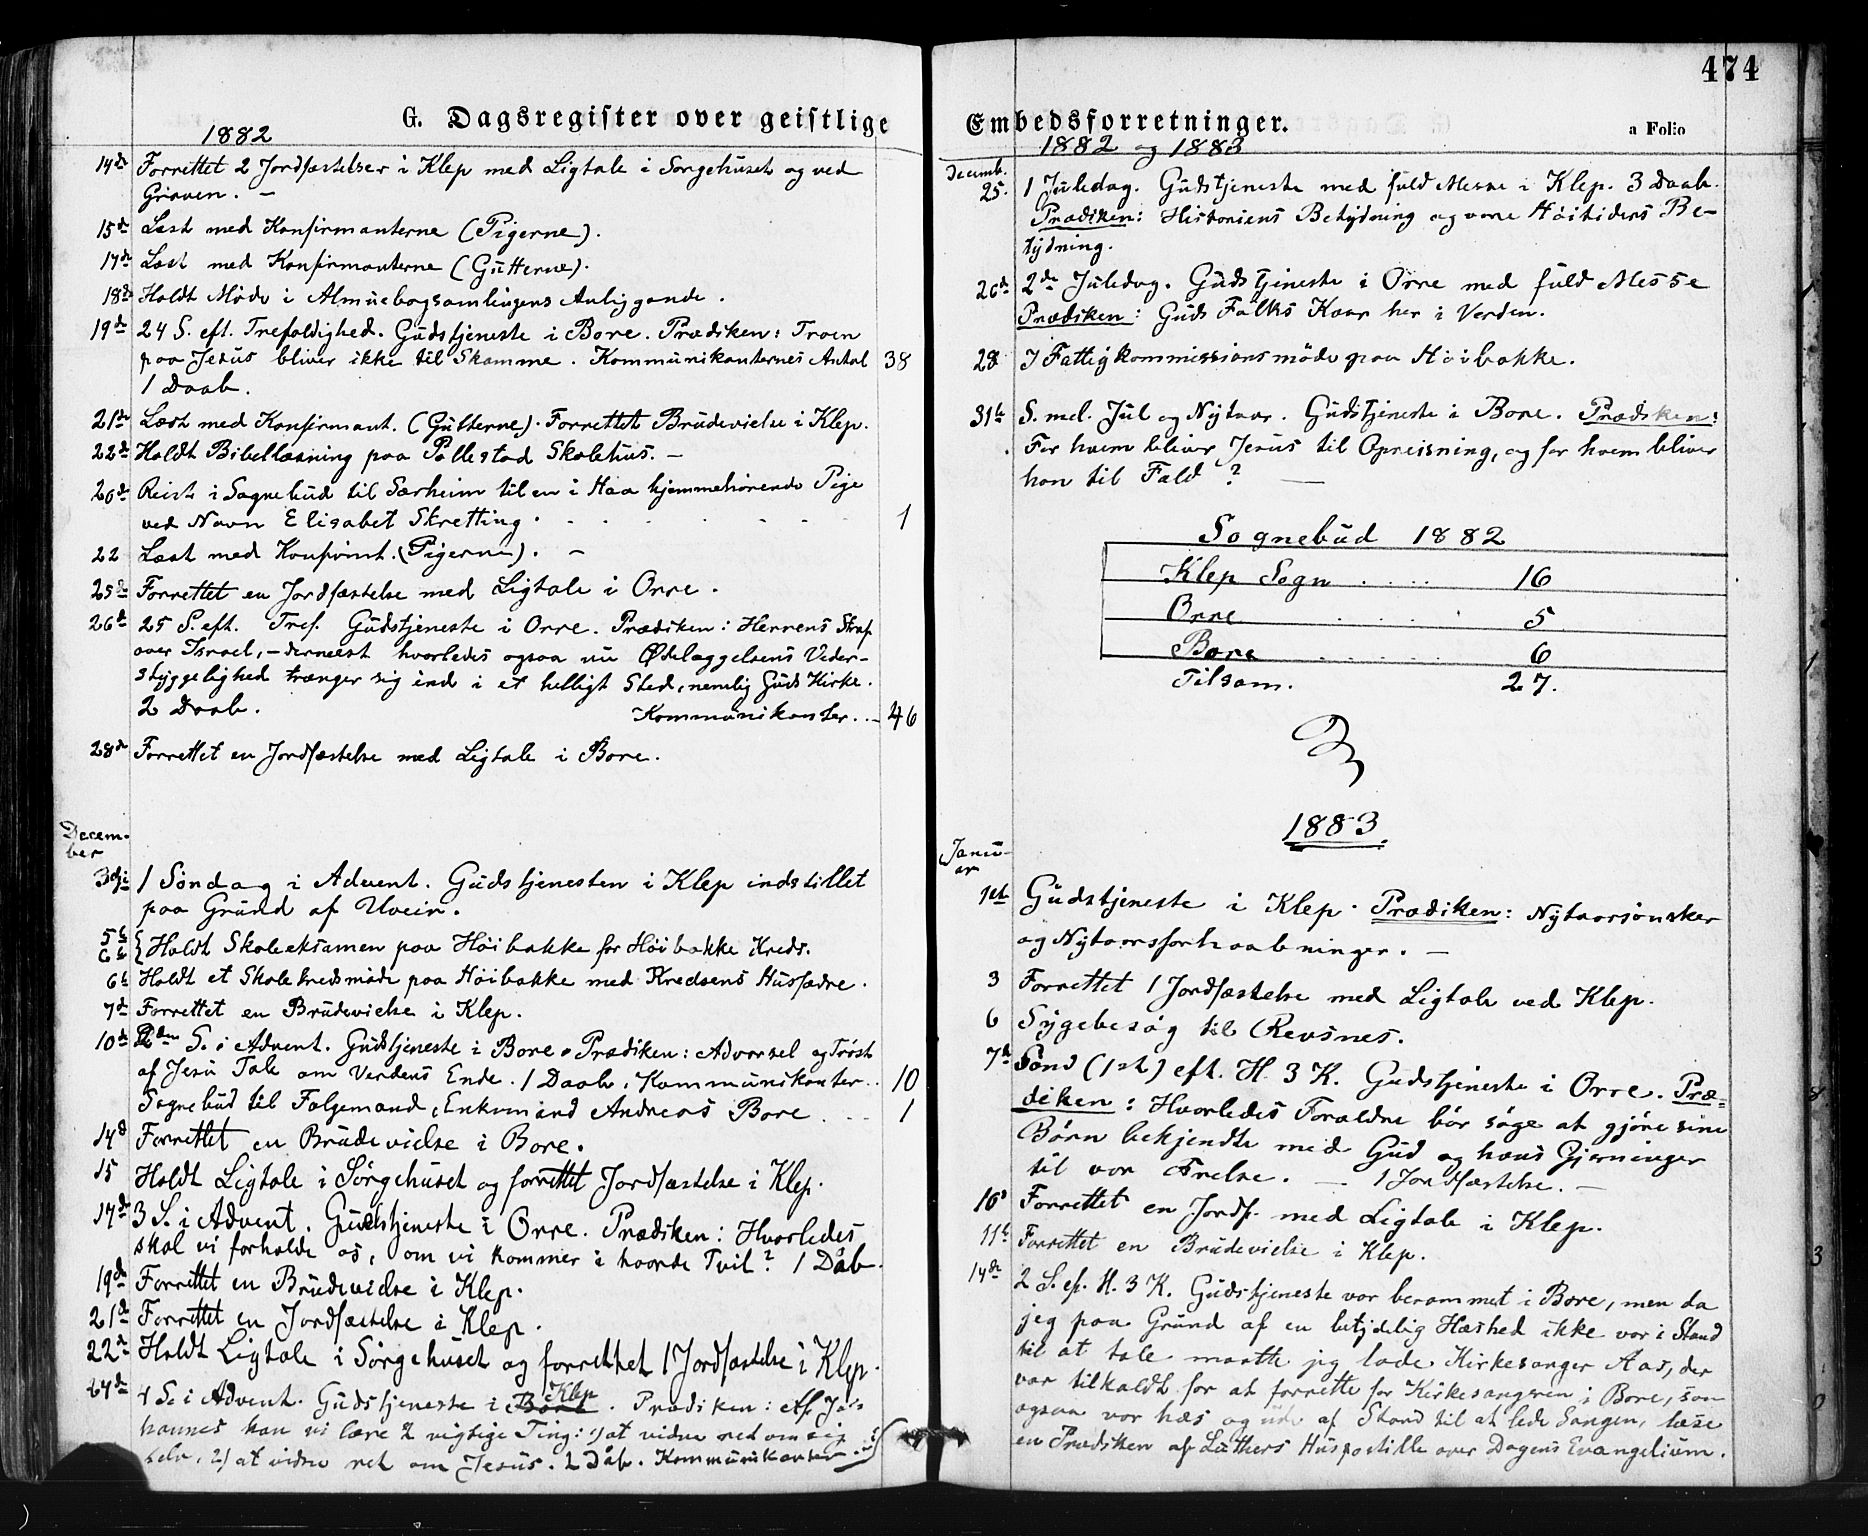 G. Dagsregister over geistlige
1882
14de Forrettet 2 Jordfæstelser i Klep med Ligtale i Sørgehuset og ved
Graven. –
15de Læst med Konfirmanterne (Pigerne).
17de Læst med Konfirmanterne (Gutterne).
18de Holdt Møde i Almuebogsamlingens Anliggende.
19de 24 S. eft. Trefoldighed. Gudstjeneste i Bore. Prædiken: Troen
paa Jesus bliver ikke til Skamme. Kommunikanternes Antal 38
1 Daab.
21de Læst med Konfirmant. (Gutterne). Forrettet Brudevielse i Klep.
22de Holdt Bibellæsning paa Pollestad Skolehus. –
20de Reist i Sognebud til Særheim til en i Haa hjemmehørende Pige
ved Navn Elisabet Skretting. 1
22 Læst med Konfirmt. (Pigerne). –
25de Forrettet en Jordfæstelse med Ligtale i Orre.
26de 25 S. eft. Tref. Gudstjeneste i Orre. Prædiken: Herrens Straf
over Israel, – dernæst hvorledes ogsaa nu Ødelæggelsens Veder-
styggelighed trænger sig ind i et helligt Sted, nemlig Guds Kirke.
2 Daab. Kommunikanter. . – 46
28de Forrettet en Jordfæstelse med Ligtale i Bore.
Decem-
ber
3die 1 Søndag i Advent. Gudstjenesten i Klep indstillet
paa Grund af Uveir.
5te
6te { Holdt Skoleeksamen paa Høibakke for Høibakke Kreds.
6te Holdt et Skolekredsmøde paa Høibakke med Kredsens Husfædre.
7de Forrettet en Brudevielse i Klep.
10de 2den S. i Advent. Gudstjeneste i Bore. Prædiken: Advarsel og Trøst
af Jesu Tale om Verdens Ende. 1 Daab. Kommunikanter . . 10
Sognebud til Følgemand, Enkemand Andreas Bore . . . 1
14d Forrettet en Brudevielse i Bore.
15 Holdt Ligtale i Sørgehuset og forrettet Jordfæstelse i Klep.
17de 3 S. i Advent. Gudstjeneste i Orre. Prædiken: Hvorledes
skal vi forholde os, om vi kommer i haarde Tvil? 1 Dåb.
19de Forrettet en Brudevielse i Klep.
21de Forrettet en Jordfæstelse i Klep.
22de Holdt Ligtale i Sørgehuset og forrettet 1 Jordfæstelse i Klep.
24de 4 S. i Advent. Gudstjeneste i Bore Klep. Prædiken: Af Jo-
hannes kan vi lære 2 vigtige Ting: 1) at vidne ret om sig
selv, 2) at vidne ret om Jesus. 2 Dåb. Kommunikanter
474
Embedsforretninger.
a Folio
1882 og 1883
Decemb.
25. 1 Juledag. Gudstjeneste med fuld Messe i Klep. 3 Daab.
Prædiken: Historiens Betydning og vore Høitiders Be-
tydning.
26de 2den Juledag. Gudstjeneste i Orre med fuld Messe
Prædiken: Guds Folks Kaar her i Verden.
28 I Fattigkommissionsmøde paa Høibakke.
31te S. mel. Jul og Nytaar. Gudstjeneste i Bore. Prædiken:
For hvem bliver Jesus til Opreisning, og for hvem bliver
han til Fald? –
Sognebud 1882
Klep Sogn . . . . . 16
Orre . . . . 5
Bore . . . . . 6
Tilsam. 27.
1883.
Janu-
ar
1ste Gudstjeneste i Klep. Prædiken: Nytaarsønsker
og Nytaarsforhaabninger. –
3 Forrettet 1 Jordfæstelse med Ligtale ved Klep.
6 Sygebesøg til Revsnes.
7de Sønd (1ste) eft. H. 3 K. Gudstjeneste i Orre. Præ-
diken: Hvorledes Forældre bør søge at gjøre sine
Børn bekjendte med Gud og hans Gjerninger
til vor Frelse. – 1 Jordfæstelse. –
10d Forrettet en Jordf. med Ligtale i Klep.
11te Forrettet en Brudevielse i Klep.
14de 2 S. ef. H. 3 K. Gudstjeneste var berammet i Bore, men da
jeg paa Grund af en betydelig Hæshed ikke var i Stand
til at tale maatte jeg lade Kirkesanger Aas, der
var tilkaldt for at forrette for Kirkesangeren i Bore, som
ogsaa var hæs og ude af Stand til at lede Sangen, læse
en Prædiken af Luthers Huspostille over Dagens Evangelium.